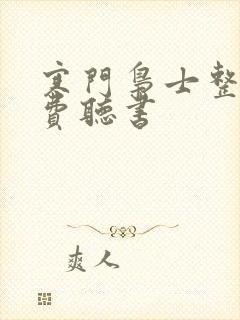 寒門梟士整
費聽書
爽人